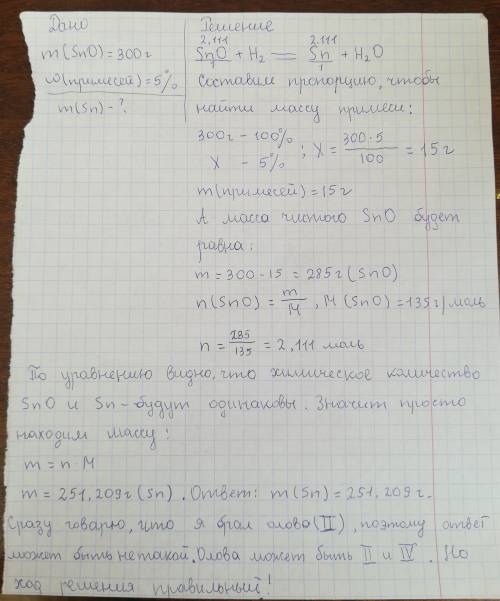 Дано
m(SnO)=300г
ω(примесей)=5%
m(Sn)-?
Решение
2,111 2.111
SnO + H₂ = Sn + H₂O
1 1
Составим пропорцию, чтобы
найти массу примеси:
300г - 100%
X - 5% ; X = 300·5/100 = 15г
m(примесей)=15г
А масса чистого SnO будет
равна:
m = 300-15 = 285г(SnO)
n(SnO) = m/M , M(SnO)=135г/моль
n = 285/135 = 2,111 моль
По уравнению видно, что химическое количество
SnO и Sn - будут одинаковы. Значит просто
находим массу:
m = n·M
m = 251,209г(Sn). Ответ: m(Sn)=251,209г.
Сразу говорю, что я брал олово(II), поэтому ответ
может быть не такой. Олова может быть II и IV. Но
ход решения правильный!